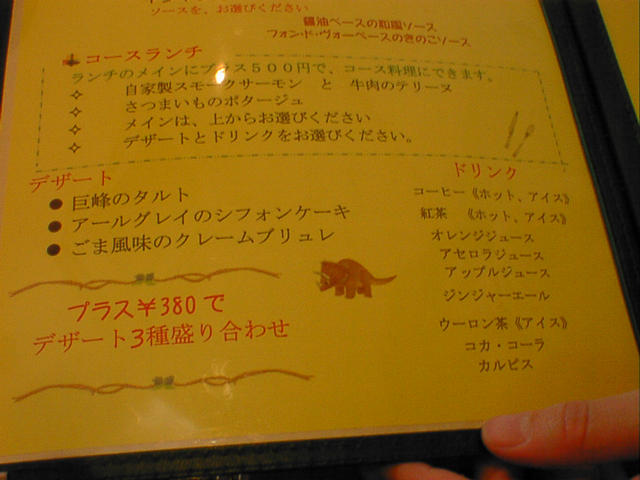 ソースを、お選びください
醤油ベースの和風ソース
フォン・ド・ヴォーベースのきのこソース
コースランチ
ランチのメインにプラス５００円で、コース料理にできます。
✧ 自家製スモークサーモン と 牛肉のテリーヌ
✧ さつまいものポタージュ
✧ メインは、上からお選びください
✧ デザートとドリンクをお選びください。
デザート
● 巨峰のタルト
● アールグレイのシフォンケーキ
● ごま風味のクレームブリュレ
プラス￥380で
デザート3種盛り合わせ
ドリンク
コーヒー《ホット、アイス》
紅茶 《ホット、アイス》
オレンジジュース
アセロラジュース
アップルジュース
ジンジャーエール
ウーロン茶《アイス》
コカ・コーラ
カルピス